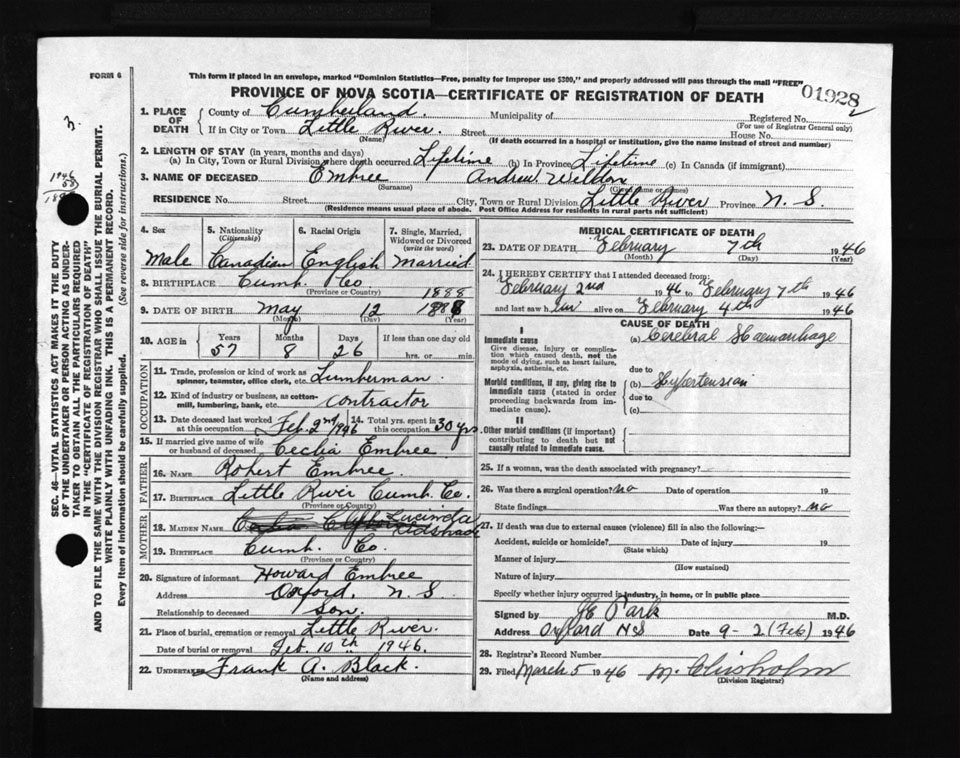 FORM 6
This form if placed in an envelope, marked "Dominion Statistics—Free, penalty for improper use $300," and properly addressed will pass through the mail "FREE"
PROVINCE OF NOVA SCOTIA—CERTIFICATE OF REGISTRATION OF DEATH
01928
2
3.
1946
58
SEC. 46—VITAL STATISTICS ACT MAKES IT THE DUTY
OF THE UNDERTAKER OR PERSON ACTING AS UNDER-
TAKER TO OBTAIN ALL THE PARTICULARS REQUIRED
IN THE "CERTIFICATE OF REGISTRATION OF DEATH"
AND TO FILE THE SAME WITH THE DIVISION REGISTRAR WHO SHALL ISSUE THE BURIAL PERMIT.
WRITE PLAINLY WITH UNFADING INK. THIS IS A PERMANENT RECORD.
Every item of information should be carefully supplied. (See reverse side for instructions.)
1. PLACE OF DEATH
County of Cumberland. Municipality of Registered No.
(For use of Registrar General only)
If in City or Town Little River. Street House No.
(Name) (If death occurred in a hospital or institution, give the name instead of street and number)
2. LENGTH OF STAY (in years, months and days)
(a) In City, Town or Rural Division where death occurred Lifetime (b) In Province Lifetime (c) In Canada (if immigrant)
3. NAME OF DECEASED Embree Andrew Weldon
(Surname) (Given name or names)
RESIDENCE No. Street City, Town or Rural Division Little River Province N. S.
(Residence means usual place of abode. Post Office Address for residents in rural parts not sufficient)
4. Sex 5. Nationality (Citizenship) 6. Racial Origin 7. Single, Married, Widowed or Divorced (write the word)
Male Canadian English Married
8. BIRTHPLACE Cumb. Co
(Province or Country)
1888
9. DATE OF BIRTH May 12 1888
(Month) (Day) (Year)
10. AGE in Years Months Days If less than one day old
57 8 26 hrs. or min.
OCCUPATION
11. Trade, profession or kind of work as spinner, teamster, office clerk, etc. Lumberman.
12. Kind of industry or business, as cotton-mill, lumbering, bank, etc. Contractor
13. Date deceased last worked at this occupation Feb. 2nd 1946 14. Total yrs. spent in this occupation 30 yrs.
15. If married give name of wife or husband of deceased Cecelia Embree
FATHER
16. NAME Robert Embree.
17. BIRTHPLACE Little River Cumb. Co.
(Province or Country)
MOTHER
18. MAIDEN NAME Lucinda
19. BIRTHPLACE Cumb. Co.
(Province or Country)
20. Signature of informant Howard Embree
Address Oxford, N. S
Relationship to deceased son.
21. Place of burial, cremation or removal Little River.
Date of burial or removal Feb. 10th 1946.
22. UNDERTAKER Frank A. Black.
(Name and address)
MEDICAL CERTIFICATE OF DEATH
23. DATE OF DEATH February 7th 1946
(Month) (Day) (Year)
24. I HEREBY CERTIFY that I attended deceased from:
February 2nd 1946 to February 7th 1946
and last saw him alive on February 4th 1946
CAUSE OF DEATH
I
Immediate cause
Give disease, injury or complication which caused death, not the mode of dying, such as heart failure, asphyxia, asthenia, etc.
(a) Cerebral Haemorrhage
due to
Morbid conditions, if any, giving rise to immediate cause (stated in order proceeding backwards from immediate cause)
(b) Hypertension
due to
(c)
II
Other morbid conditions (if important) contributing to death but not causally related to immediate cause.
25. If a woman, was the death associated with pregnancy?
26. Was there a surgical operation? no Date of operation 19
State findings Was there an autopsy? no
27. If death was due to external causes (violence) fill in also the following:—
Accident, suicide or homicide? Date of injury 19
(State which)
Manner of injury
(How sustained)
Nature of injury
Specify whether injury occurred in industry, in home, or in public place
Signed by Park M.D.
Address Oxford NS Date 9-2 (Feb) 1946
28. Registrar's Record Number
29. Filed March 5 1946 M. Chisholm
(Division Registrar)